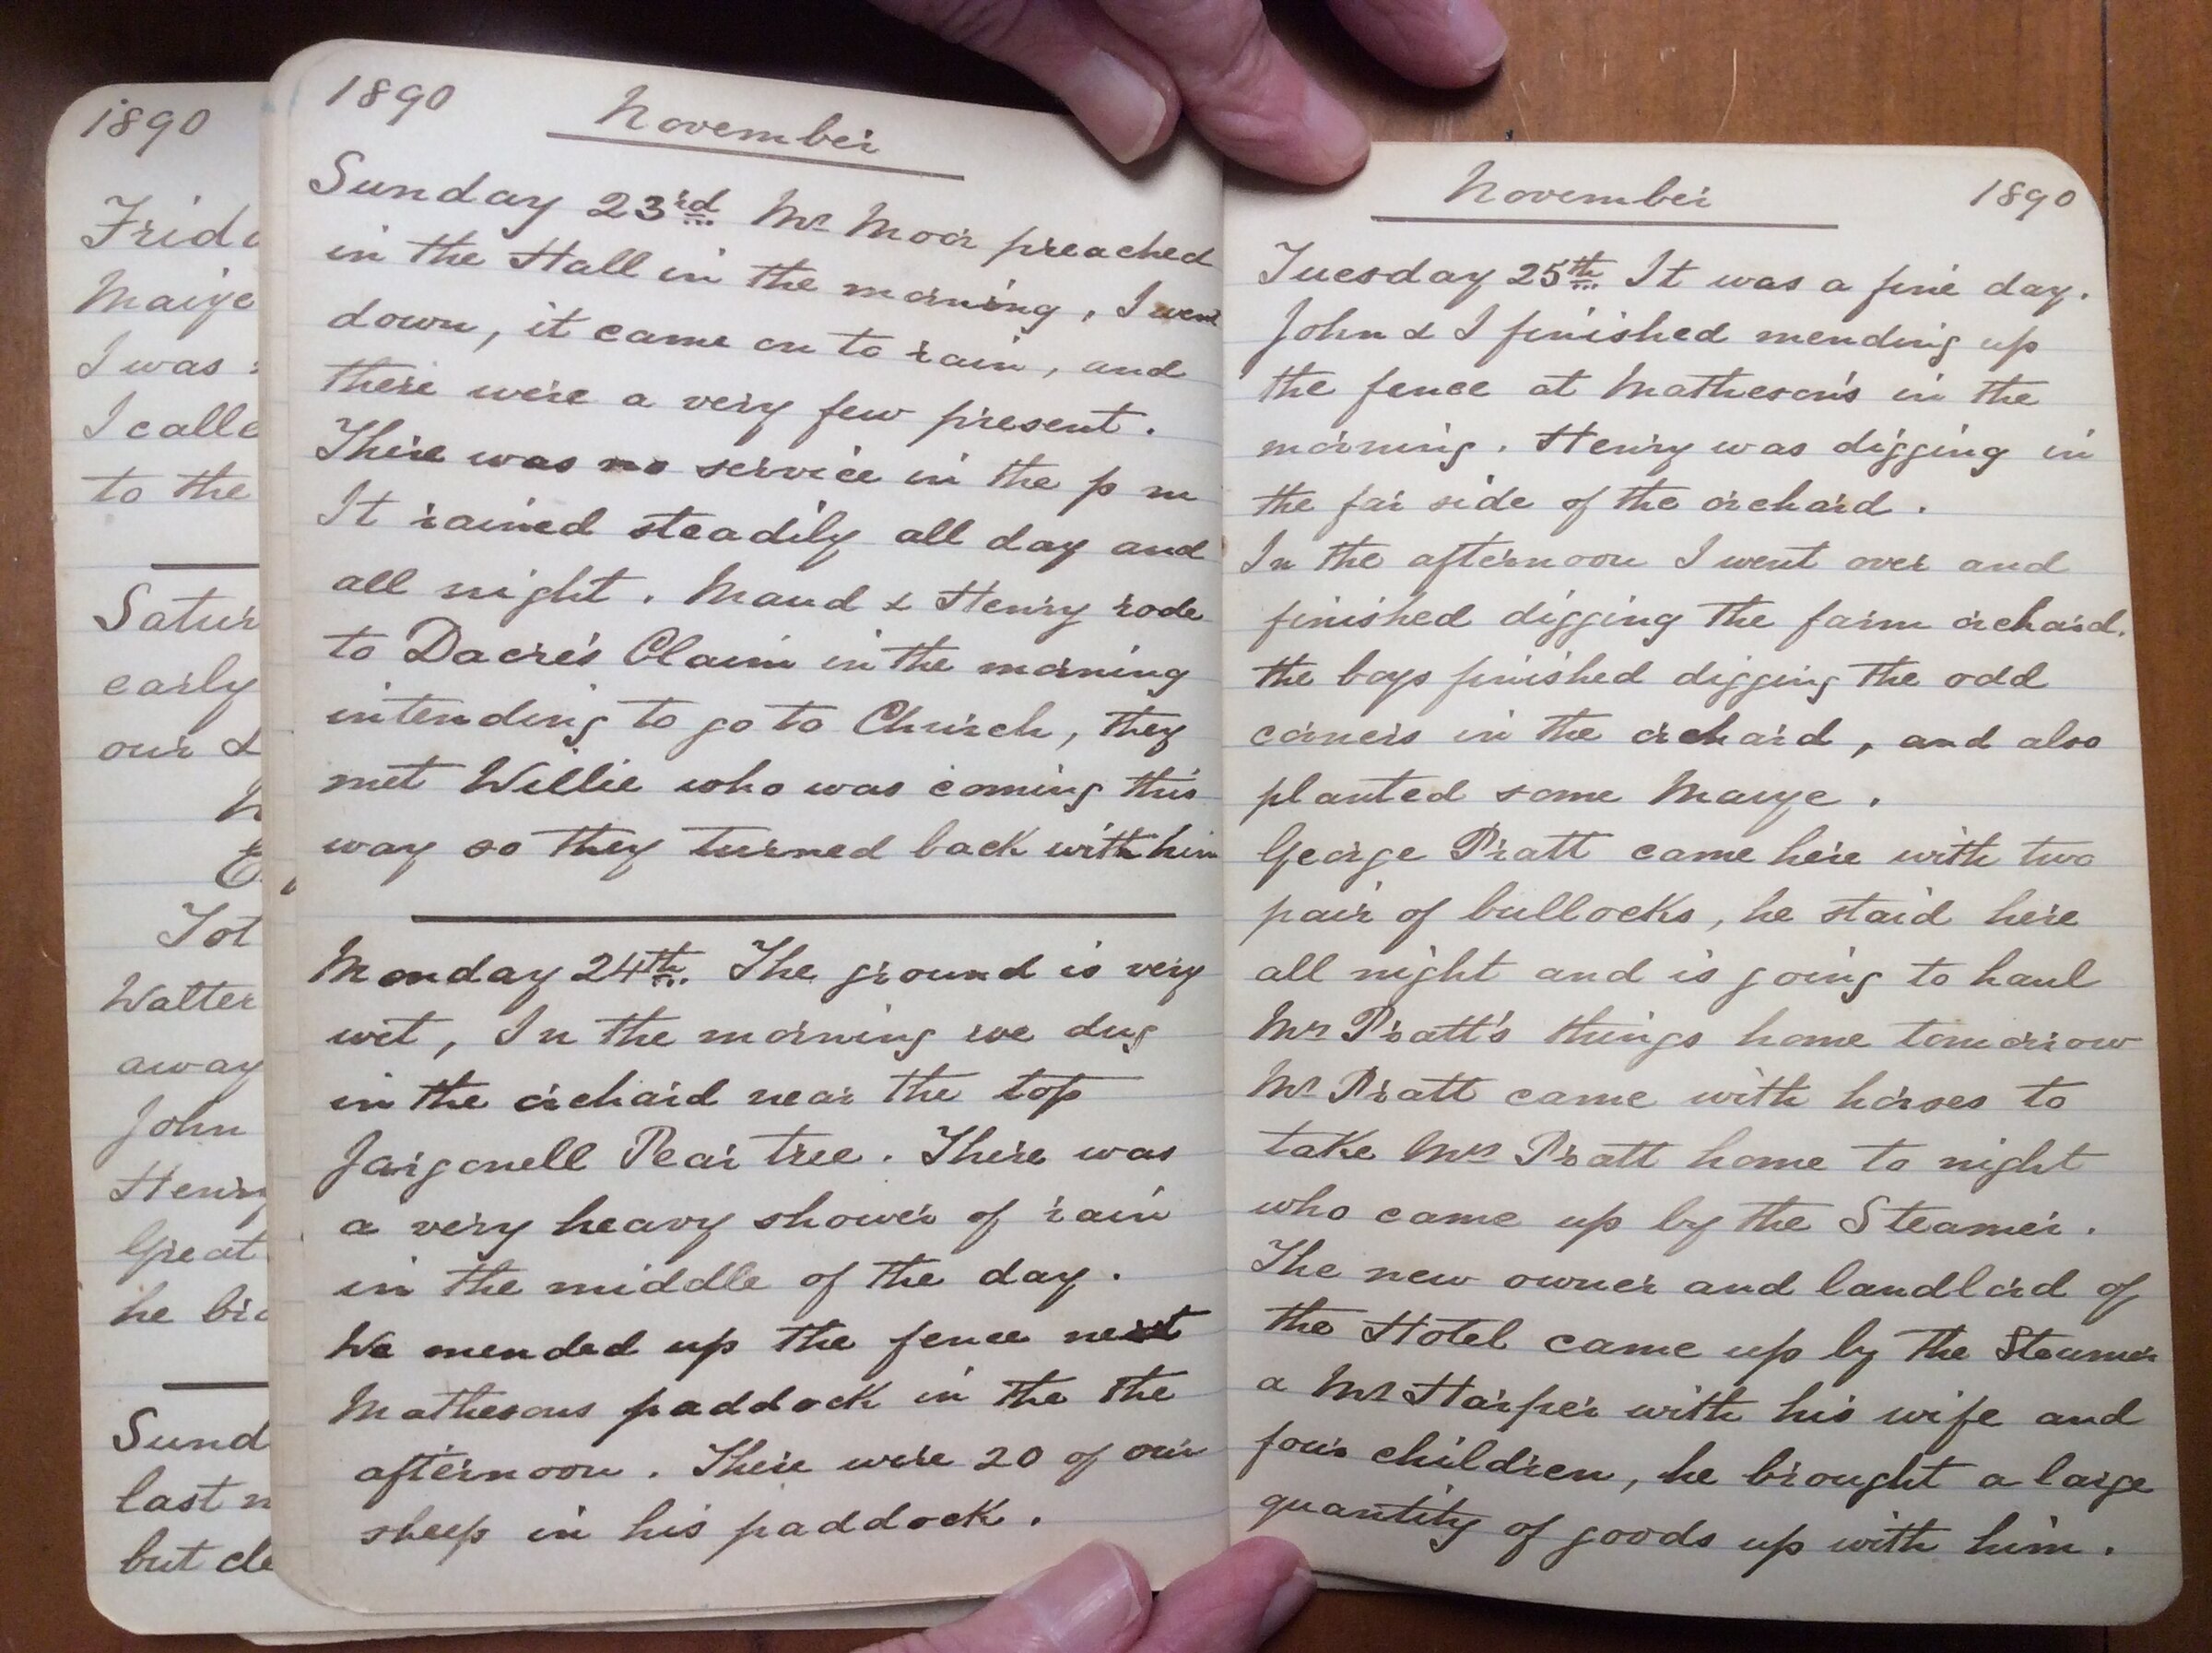 1890
Frida
Maize
I was
I calle
to the
Satur
early
our &
Tot
Walter
away
John
Henry
Great
he bro
Sund
last n
but cle
1890 November
Sunday 23rd Mr Moor preached
in the Hall in the morning, I went
down, it came on to rain, and
there were a very few present.
There was no service in the p m
It rained steadily all day and
all night. Maud & Henry rode
to Dacre's Claim in the morning
intending to go to Church, they
met Willie who was coming this
way so they turned back with him
Monday 24th. The ground is very
wet, In the morning we dug
in the orchard near the top
Jargonell Pear tree. There was
a very heavy shower of rain
in the middle of the day.
We mended up the fence next
Mathesons paddock in the the
afternoon. There were 20 of our
sheep in his paddock.
November 1890
Tuesday 25th. It was a fine day.
John & I finished mending up
the fence at Matheson's in the
morning. Henry was digging in
the far side of the orchard.
In the afternoon I went over and
finished digging the farm orchard.
the boys finished digging the odd
corners in the orchard, and also
planted some Maize.
George Pratt came here with two
pair of bullocks, he staid here
all night and is going to haul
Mr Pratt's things home tomorrow
Mr Pratt came with horses to
take Mrs Pratt home to night
who came up by the Steamer.
The new owner and landlord of
the Hotel came up by the Steamer
a Mr Harper with his wife and
four children, he brought a large
quantity of goods up with him.